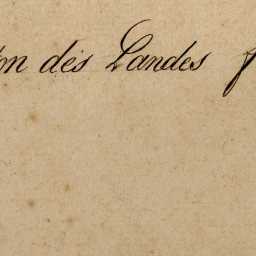 on des Landes